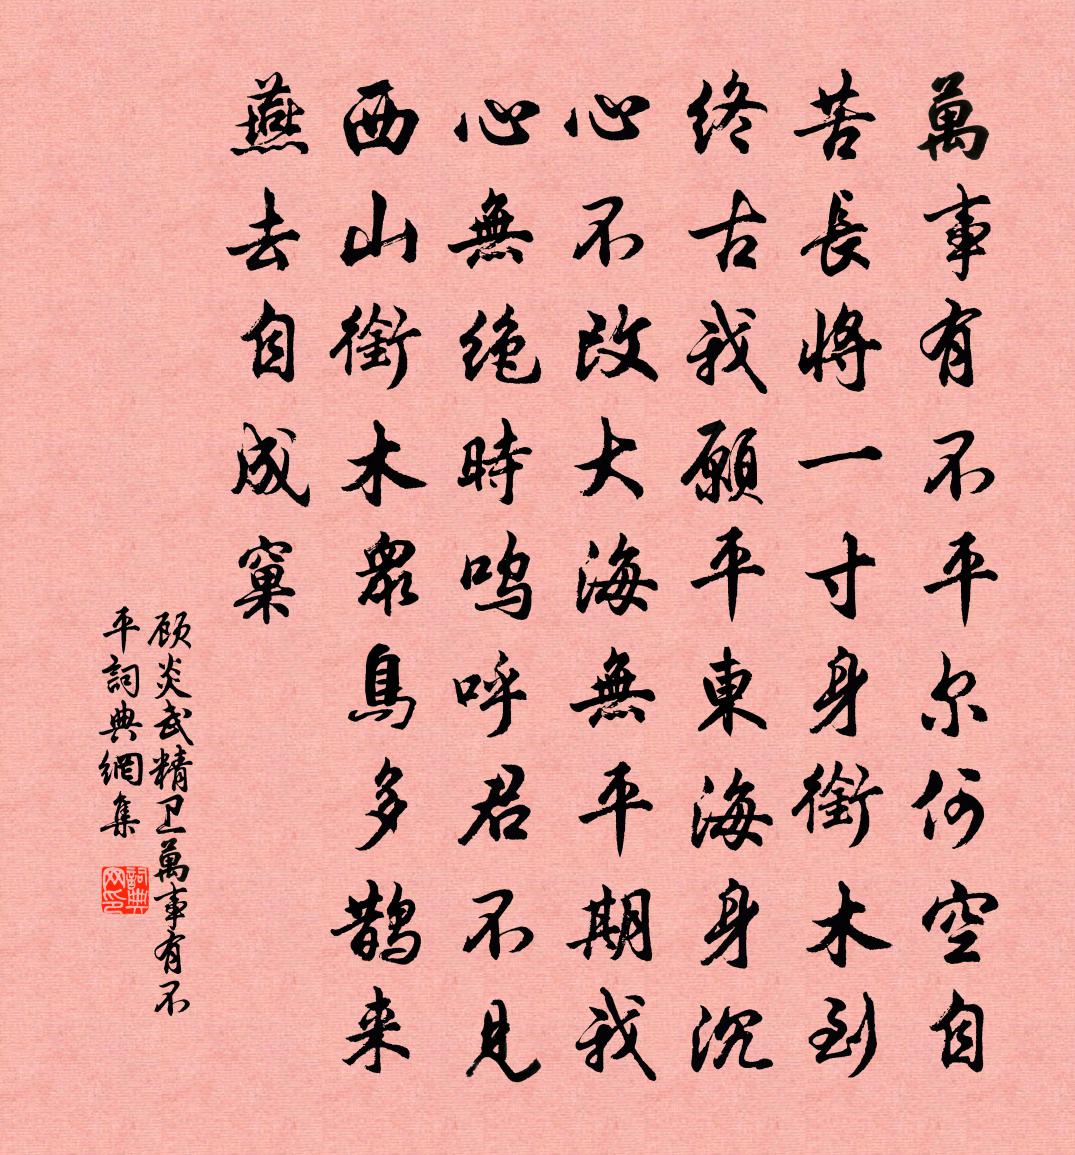 萬事有不平尔何空自
苦長將一寸身銜木到
終古我願平東海身沉
心不改大海無平期我
心無绝時鸣呼君不見
西山銜木衆鳥多鹊来
燕去自成窠
顾炎武精卫萬事有不
平詞典網集
詞典网印